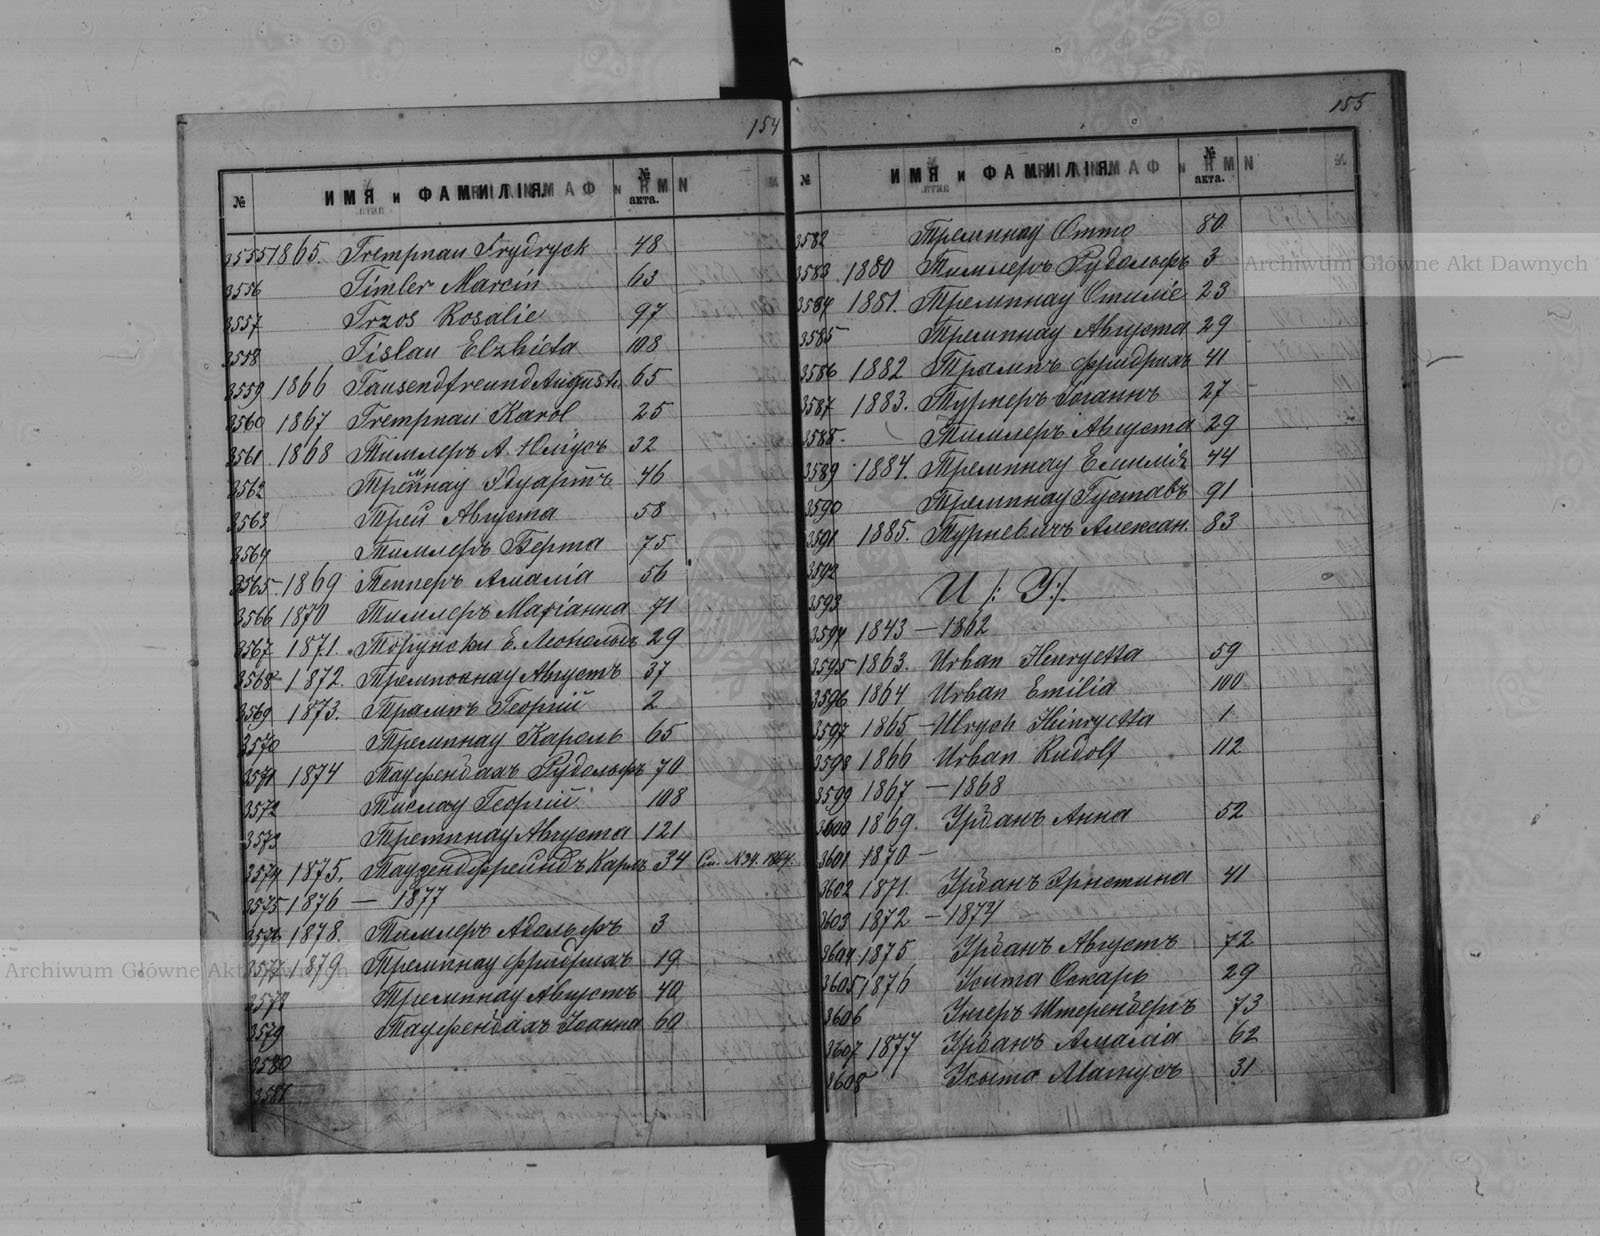 154
№ ИМЯ и ФАМИЛІЯ № акта.
3555 1865. Trempnau Frydryck 48
3556 Timler Marcin 63
3557 Trzos Rosalie 97
3558 Tislau Elzbieta 108
3559 1866 Tausendfreund August. 65
3560 1867 Trempnau Karol 25
3561 1868 Тимлеръ А. Юліусъ 32
3562 Тремпнау Эдуартъ 46
3563 Трей Августа 58
3564 Тимлеръ Берта 75
3565 1869 Тепперъ Амалія 56
3566 1870 Тимлеръ Маріанна 71
3567 1871. Торунски Е. Леопольдъ 29
3568 1872. Тремпнау Августъ 37
3569 1873. Трампъ Георгій 2
3570 Тремпнау Кароль 65
3571 1874 Тауфенбахъ Рудольфъ 70
3572 Тислау Георгій 108
3573 Тремпнау Августа 121
3574 1875. Таузендфреиндъ Карлъ 34 См. N34. 1864.
3575 1876 — 1877
3576 1878. Тимлеръ Адольфъ 3
3577 1879 Тремпнау Фридрихъ 19
3578 Тремпнау Августъ 40
3579 Тауфенбахъ Іоанна 60
3580
3581
155
№ ИМЯ и ФАМИЛІЯ № акта.
3582 Тремпнау Отто 80
3583 1880 Тимлеръ Рудольфъ 3
3584 1881. Тремпнау Отиліе 23
3585 Тремпнау Августа 29
3586 1882 Трампъ Фридрихъ 41
3587 1883. Турнеръ Іоганнъ 27
3588 Тимлеръ Августа 29
3589 1884. Тремпнау Емилія 44
3590 Тремпнау Густавъ 91
3591 1885. Турневичъ Алексан. 83
3592
3593 U /: У:/.
3594 1843 — 1862
3595 1863. Urban Henryetta 59
3596 1864 Urban Emilia 100
3597 1865 — Ulrych Heinryetta 1
3598 1866 Urban Rudolf 112
3599 1867 — 1868
3600 1869. Урбанъ Анна 52
3601 1870 —
3602 1871. Урбанъ Христина 41
3603 1872 — 1874
3604 1875 Урбанъ Августъ 72
3605 1876 Усита Оскаръ 29
3606 Унгеръ Штеренбергъ 73
3607 1877 Урбанъ Амалія 62
3608 31
Archiwum Główne Akt Dawnych
Archiwum Główne Akt Dawnych